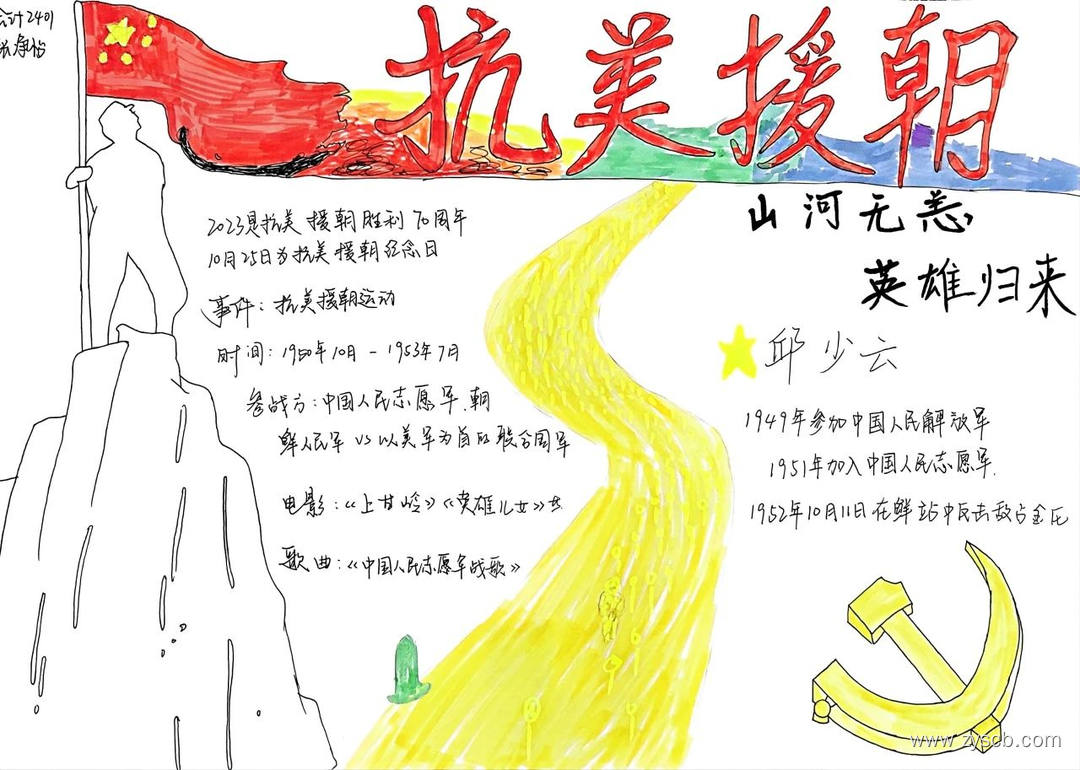 会计2401
抗美援朝
山河无恙,
英雄归来
2023是抗美援朝胜利70周年
10月25日为抗美援朝纪念日
事件：抗美援朝运动
时间：1950年10月-1953年7月
参战方：中国人民志愿军、朝
鲜人民军 VS 以美军为首的联合国军
电影：《上甘岭》《英雄儿女》
歌曲：《中国人民志愿军战歌》
邱少云
1949年参加中国人民解放军
1951年加入中国人民志愿军.
1952年10月11日在鲜战中反击敌占金化
www.zyscb.com